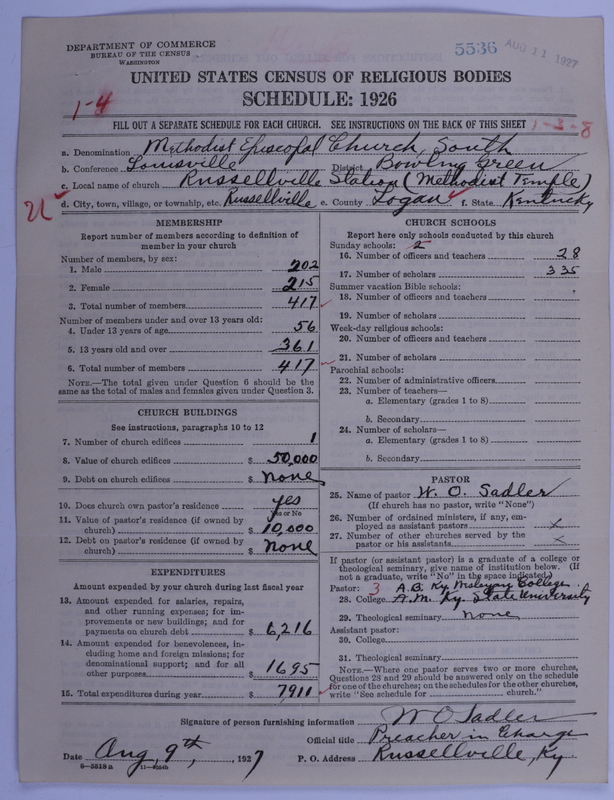 DEPARTMENT OF COMMERCE
BUREAU OF THE CENSUS
WASHINGTON
5536 AUG 11 1927
UNITED STATES CENSUS OF RELIGIOUS BODIES
SCHEDULE: 1926
1-4
FILL OUT A SEPARATE SCHEDULE FOR EACH CHURCH. SEE INSTRUCTIONS ON THE BACK OF THIS SHEET
1-3-8
a. Denomination Methodist Episcopal Church, South
b. Conference Louisville District Bowling Green
c. Local name of church Russellville Station (Methodist Temple)
d. City, town, village, or township, etc. Russellville e. County Logan f. State Kentucky
MEMBERSHIP
Report number of members according to definition of
member in your church
Number of members, by sex:
1. Male 202
2. Female 215
3. Total number of members 417
Number of members under and over 13 years old:
4. Under 13 years of age 56
5. 13 years old and over 361
6. Total number of members 417
NOTE.—The total given under Question 6 should be
same as the total of males and females given under Question 3.
CHURCH BUILDINGS
See instructions, paragraphs 10 to 12
7. Number of church edifices 1
8. Value of church edifices $ 50,000
9. Debt on church edifices $ none
10. Does church own pastor's residence yes
Yes or No
11. Value of pastor's residence (if owned by
church) $ 10,000
12. Debt on pastor's residence (if owned by
church) $ none
EXPENDITURES
Amount expended by your church during last fiscal year
13. Amount expended for salaries, repairs,
and other running expenses; for im-
provements or new buildings; and for
payments on church debt $ 6,216
14. Amount expended for benevolences, in-
cluding home and foreign missions; for
denominational support; and for all
other purposes $ 1695
15. Total expenditures during year $ 7911
CHURCH SCHOOLS
Report here only schools conducted by this church
Sunday schools: 2
16. Number of officers and teachers 28
17. Number of scholars 335
Summer vacation Bible schools:
18. Number of officers and teachers
19. Number of scholars
Week-day religious schools:
20. Number of officers and teachers
21. Number of scholars
Parochial schools:
22. Number of administrative officers
23. Number of teachers—
a. Elementary (grades 1 to 8)
b. Secondary
24. Number of scholars—
a. Elementary (grades 1 to 8)
b. Secondary
PASTOR
25. Name of pastor W. O. Sadler
(If church has no pastor, write "None")
26. Number of ordained ministers, if any, em-
ployed as assistant pastors x
27. Number of other churches served by the
pastor or his assistants x
If pastor (or assistant pastor) is a graduate of a college or
theological seminary, give name of institution below. (If
not a graduate, write "No" in the space indicated.)
Pastor: 3 A.B. Ky. Wesleyan College
28. College A.M. Ky. State University
29. Theological seminary none
Assistant pastor:
30. College
31. Theological seminary
NOTE.—Where one pastor serves two or more churches,
Questions 28 and 29 should be answered only on the schedule
for one of the churches; on the schedules for the other churches,
write "See schedule for church."
Signature of person furnishing information W O Sadler
Official title Preacher in Charge
Date Aug. 9th, 1927 P. O. Address Russellville, Ky.